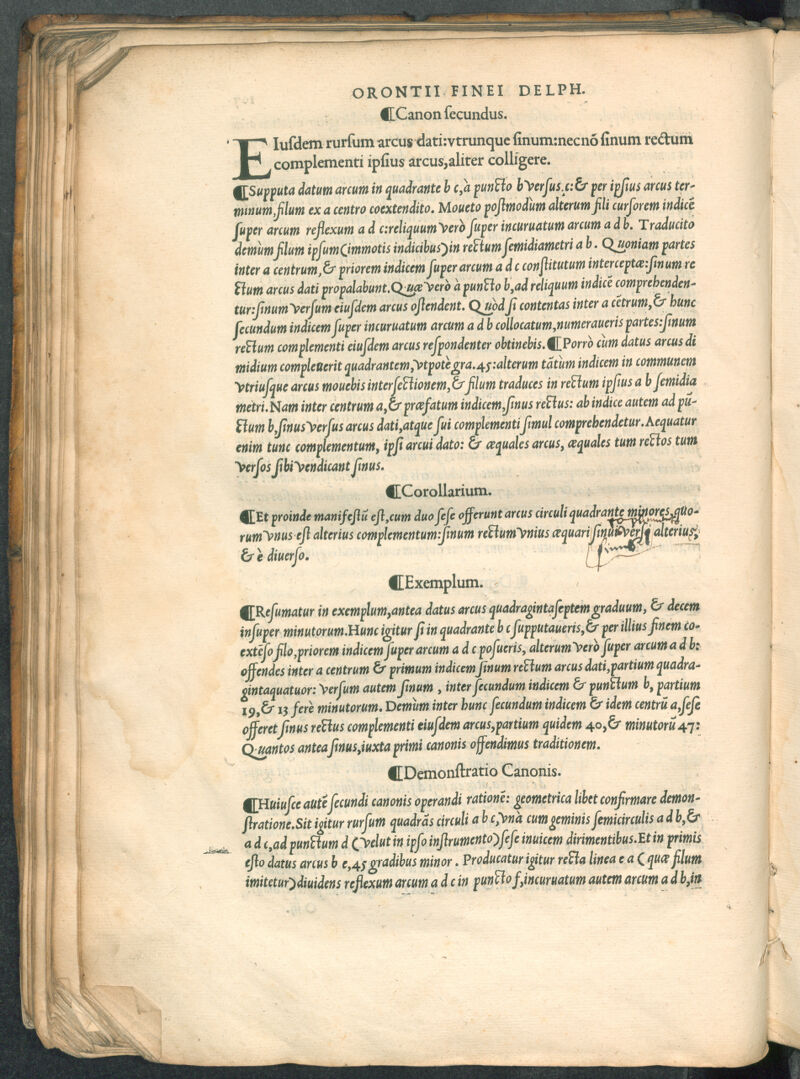 ORONTII FINEI DELPH.
¶Canon ſecundus.
EIuſdem rurſum arcus dati:vtrunque ſinum:necnō ſinum rectum
complementi ipſius arcus,aliter colligere.
¶Supputa datum arcum in quadrante b c,à puncto b verſus c:& per ipſius arcus ter-
minum,filum ex a centro coextendito. Moueto poſtmodùm alterum fili curſorem indicē
ſuper arcum reflexum a d c:reliquum verò ſuper incuruatum arcum a d b. Traducito
demùm filum ipſum(immotis indicibus)in rectum ſemidiametri a b. Quoniam partes
inter a centrum,& priorem indicem ſuper arcum a d c conſtitutum interceptæ:ſinum re
ctum arcus dati propalabunt.Quæ verò à puncto b,ad reliquum indicē comprehenden-
tur:ſinum verſum eiuſdem arcus oſtendent. Quòd ſi contentas inter a cētrum,& hunc
ſecundum indicem ſuper incuruatum arcum a d b collocatum,numeraueris partes:ſinum
rectum complementi eiuſdem arcus reſpondenter obtinebis.¶Porrò cùm datus arcus di
midium compleuerit quadrantem,vtpotè gra.45:alterum tātùm indicem in communem
vtriuſque arcus mouebis interſectionem,& filum traduces in rectum ipſius a b ſemidia
metri.Nam inter centrum a,& præfatum indicem,ſinus rectus: ab indice autem ad pū-
ctum b,ſinus verſus arcus dati,atque ſui complementi ſimul comprehendetur.Aequatur
enim tunc complementum, ipſi arcui dato: & æquales arcus, æquales tum rectos tum
verſos ſibi vendicant ſinus.
¶Corollarium.
¶Et proinde manifeſtū eſt,cum duo ſeſe offerunt arcus circuli quadrante minores,quo-
rum vnus eſt alterius complementum:ſinum rectum vnius æquari ſinui verſo alterius,
ſinus
& è diuerſo.
¶Exemplum.
¶Reſumatur in exemplum,antea datus arcus quadragintaſeptem graduum, & decem
inſuper minutorum.Hunc igitur ſi in quadrante b c ſupputaueris,& per illius finem co-
extēſo filo,priorem indicem ſuper arcum a d c poſueris, alterum verò ſuper arcum a d b:
offendes inter a centrum & primum indicem ſinum rectum arcus dati,partium quadra-
gintaquatuor: verſum autem ſinum , inter ſecundum indicem & punctum b, partium
19,& 13 ferè minutorum. Demùm inter hunc ſecundum indicem & idem centrū a,ſeſe
offeret ſinus rectus complementi eiuſdem arcus,partium quidem 40,& minutorū 47:
Quantos antea ſinus,iuxta primi canonis offendimus traditionem.
¶Demonſtratio Canonis.
¶Huiuſce autē ſecundi canonis operandi rationē: geometrica libet confirmare demon-
ſtratione.Sit igitur rurſum quadrās circuli a b c,vnà cum geminis ſemicirculis a d b,&
a d c,ad punctum d (velut in ipſo inſtrumento)ſeſe inuicem dirimentibus.Et in primis
eſto datus arcus b e,45 gradibus minor . Producatur igitur recta linea e a ( quæ filum
imitetur)diuidens reflexum arcum a d c in puncto f,incuruatum autem arcum a d b,in